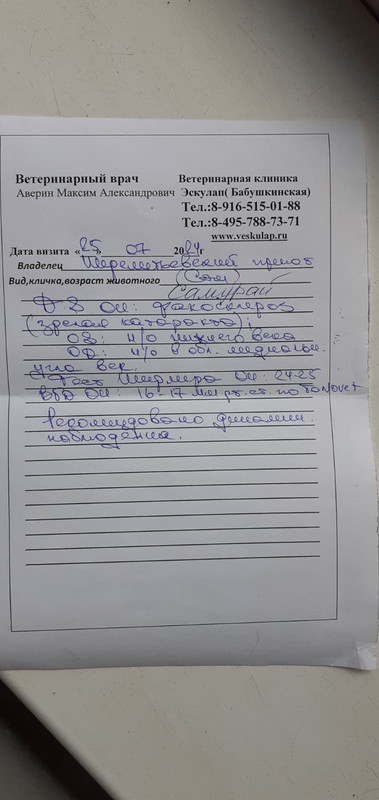 Ветеринарный врач Ветеринарная клиника
Аверин Максим Александрович Эскулап( Бабушкинская)
Тел.:8-916-515-01-88
Тел.:8-495-788-73-71
www.veskulap.ru
Дата визита «25» 07 2024г
Владелец Шереметьевский приют
(Сэм)
Вид,кличка,возраст животного Самурай
DS OU: факосклероз
(зрелая катаракта);
OS: н/о нижнего века
OD: н/о в обл. медиальн
угла век.
Тест Ширмера OU: 24-25
ВГД OU: 16-17 мм рт. ст. по TonoVet
Рекомендовано динамич.
наблюдение.